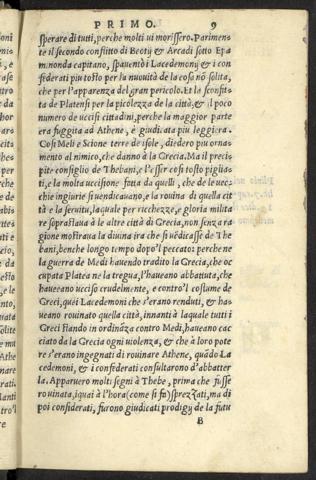 PRIMO. 9
sperare di tutti, perche molti ui morissero. Parimen-
te il secondo conflitto di Beoty & Arcadi sotto Epa
minonda capitano, spauentò i Lacedemony & i con
federati piu tosto per la nouità de la cosa nō solita,
che per l'apparenza del gran pericolo. Et la sconfit-
ta de Platensi per la picolezza de la città, & il poco
numero de uccisi cittadini, perche la maggior parte
era fuggita ad Athene, è giudicata piu leggiera.
Cosi Meli e Scione terre de isole, diedro piu orna-
mento al nimico, che danno à la Grecia. Ma il preci-
pite consiglio de Thebani, e l'esser cosi tosto piglia-
ti, e la molta uccisione fatta da quelli, che de le uec-
chie ingiurie si uendicauano, e la rouina di quella cit
tà e la seruitu, laquale per ricchezze, e gloria milita
re soprastaua à le altre città di Grecia, non senza ra
gione mostraua la diuina ira che si uēdicasse de The
bani, benche longo tempo dopo'l peccato: perche ne
la guerra de Medi hauendo tradito la Grecia, che oc
cupata Platea ne la tregua, l'haueano abbattuta, che
haueano ucciso crudelmente, e contro'l costume de
Greci, quei Lacedemoni che s'erano renduti, & ha-
ueano rouinato quella città, innanti à laquale tutti i
Greci stando in ordināza contro Medi, haueano cac
ciato da la Grecia ogni uiolenza, & che à loro pote
re s'erano ingegnati di rouinare Athene, quādo La
cedemoni, & i confederati consultarono d'abbatter
la. Apparuero molti segni à Thebe, prima che fusse
rouinata, iquai à l'hora (come si fa) sprezzati, ma di
poi considerati, furono giudicati prodigy de la futu
B